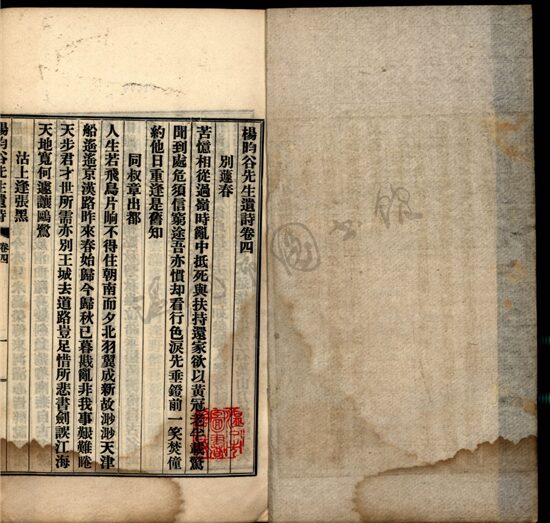 楊昀谷先生遺詩卷四
別蓮春
苦憶相從過嶺時亂中抵死與扶持還家欲以黃冠老半載驚
聞到處危須信窮途吾亦慣却看行色淚先垂鐙前一笑焚僮
約他日重逢是舊知
同叔章出都
人生若飛鳥片晌不得住朝南而夕北羽翼成新故渺渺天津
船遙遙京漢路昨來春始歸今歸秋已暮戡亂非我事艱難睠
天步君才世所需亦別王城去道路豈足惜所悲書劍誤江海
天地寬何遽讓鷗鷺
沽上逢張黑
楊昀谷先生遺詩 卷四